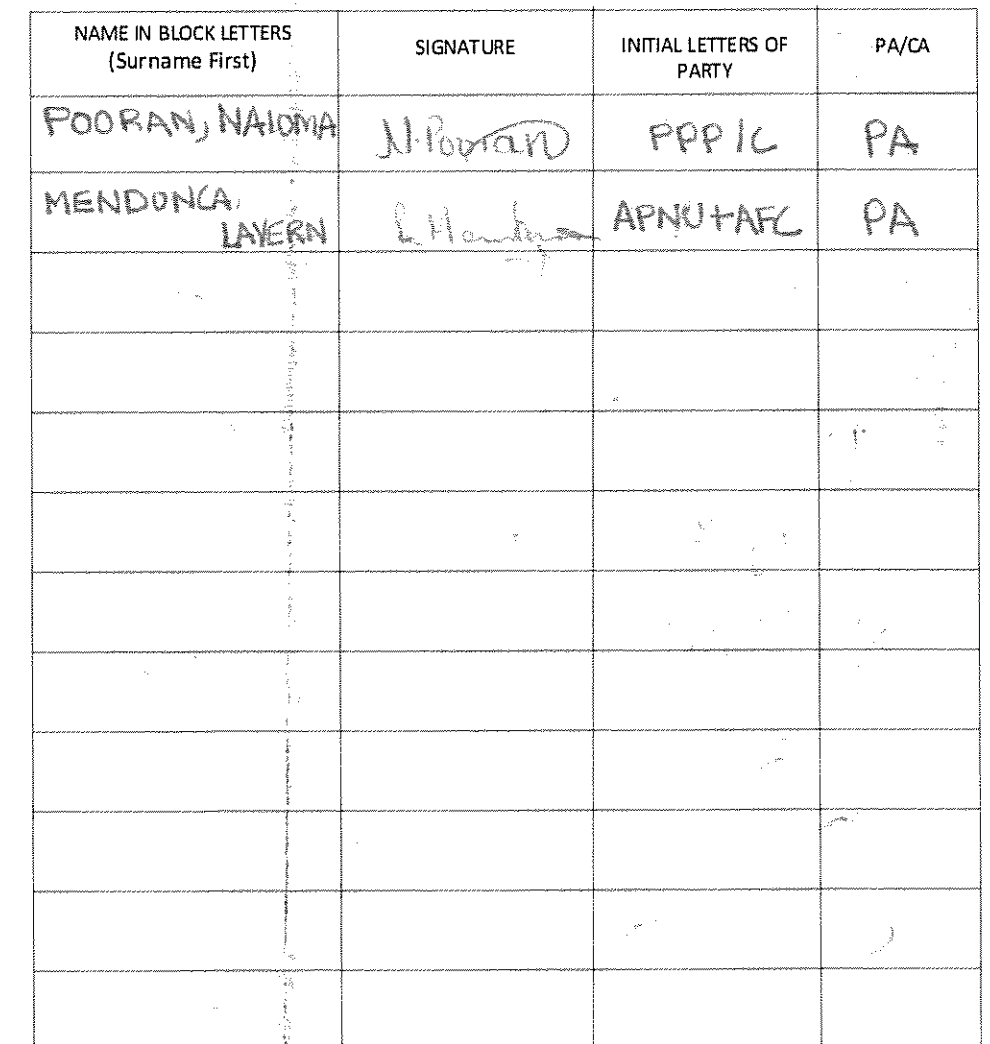 NAME IN BLOCK LETTERS
(Surname First)
SIGNATURE
INITIAL LETTERS OF
PARTY
PA/CA
POORAN, NALOMA
N. Pooran
PPP/C
PA
MENDONCA,
LAVERN
APNU+AFC
PA